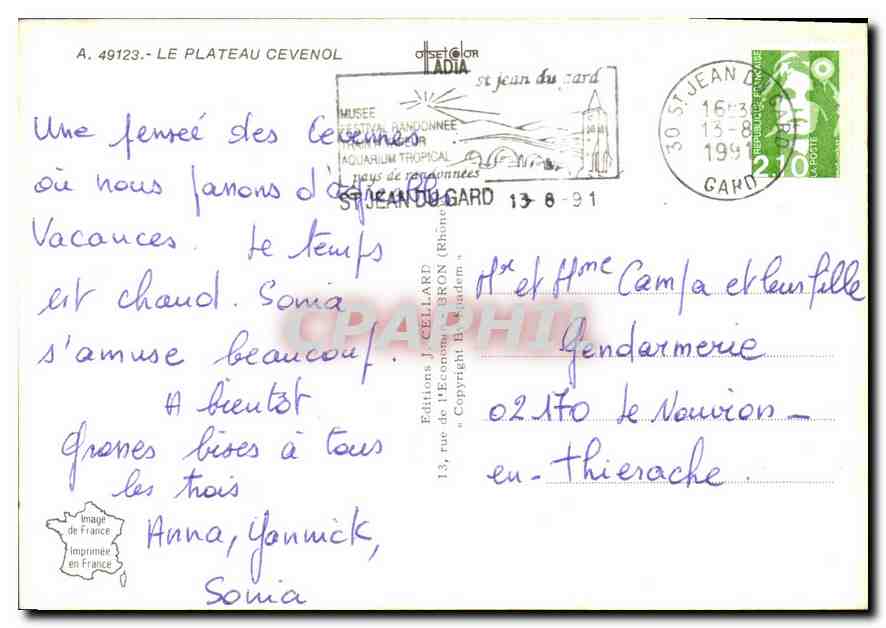 A. 49123.- LE PLATEAU CEVENOL
OFFSET COLOR
ADIA
st jean du gard
MUSEE
FESTIVAL RANDONNEE
AQUARIUM TROPICAL
pays de randonnées
ST JEAN DU GARD 13-8-91
30 ST JEAN DU GARD
16H30
13-8
1991
GARD
REPUBLIQUE FRANÇAISE
2,10
LA POSTE
Une pensée des Cevennes
où nous passons d'agreables
Vacances. Le temps
est chaud. Sonia
s'amuse beaucoup.
A bientôt
Grosses bises à tous
les trois
Anna, Yannick,
Sonia
Image
de France
Imprimée
en France
Editions J. CELLARD
13, rue de l'Economie BRON (Rhône)
« Copyright By Rhadem »
Mr et Mme Campa et leur fille
Gendarmerie
02170 Le Nouvion-
en-Thierache
CPAPHIL